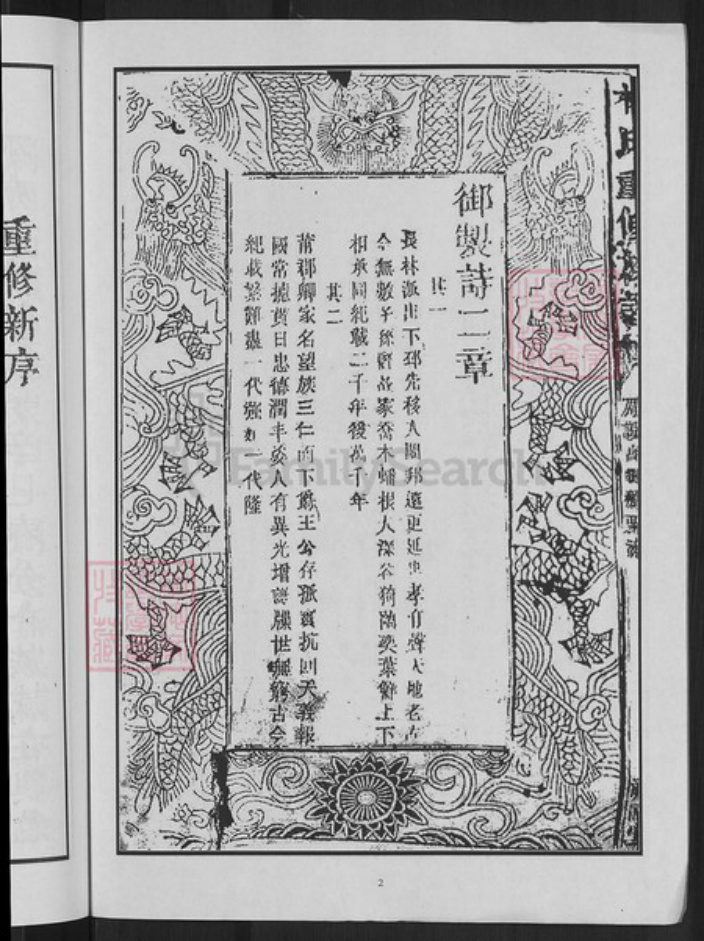 御製詩二章
其一
長林派出下邳先移入閩邦遠更延忠孝有聲天地老古
今無數子孫賢故家喬木蟠根大深谷猗蘭奕葉鮮上下
相承同紀載二千年後萬千年
其二
莆郡鄉家名望族三仁而下爵王公存孤實抗回天義報
國常摅貫日忠德潤丰姿人有異光增譜牒世無窮古今
紀載繁難盡一代強如一代隆
林氏重修
重修新序
FamilySearch
2